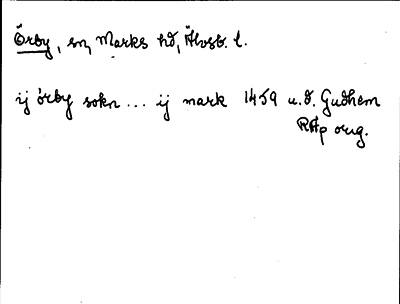 Örby, sn, Marks hd, Älvsb. l.
ij örby sokn ... ij mark 1459 u.d. Gudhem
RAp orig.